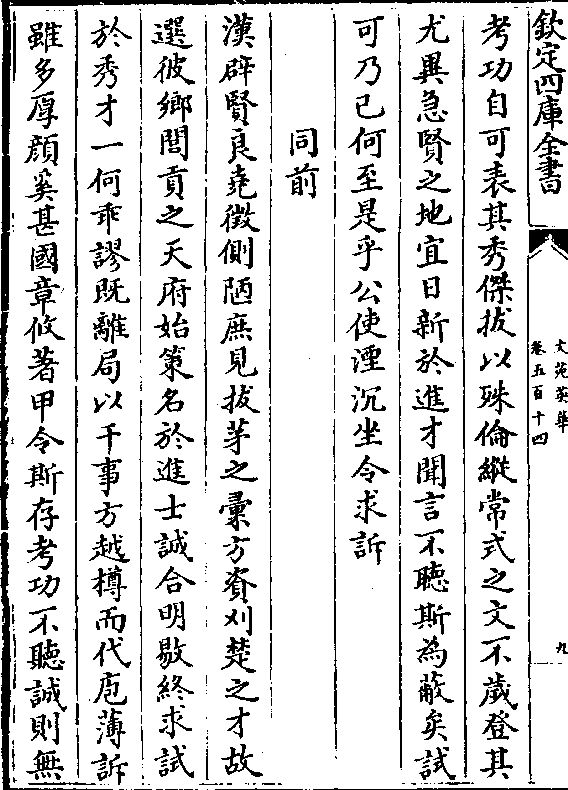 欽定四庫全書
文苑英華
卷五百十四
九
考功自可表其秀傑拔以殊倫縱常式之文不歲登其
尤異急賢之地宜日新於進才聞言不聽斯為蔽矣試
可乃已何至是乎公使湮沉坐令求訴
同前
漢辟賢良堯徵側陋庶見拔茅之彙方資刈楚之才故
選彼鄉閭貢之天府始策名於進士誠合明敭終求試
於秀才一何乖謬既離局以干事方越樽而代庖薄訴
雖多厚顔奚甚國章攸著甲令斯存考功不聽誠則無